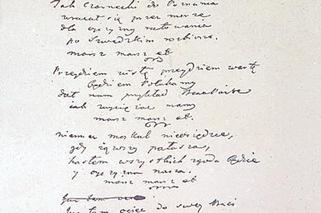 Jak Czarnecki do Poznania
wracał się przez morze
dla ojczyzny ratowania
po szwedzkim rozbiorze.
marsz marsz etc
Przejdziem Wisłę przejdziem Wartę
będziem Polakamy
dał nam przykład Bonaparte
jak zwyciężać mamy
marsz marsz etc
niemiec moskal nieosiędzie,
gdy iąwszy pałasza,
hasłem wszystkich zgoda będzie
y oyczyzna nasza.
marsz marsz etc
Już tam
Już tam ociec do swej Basi